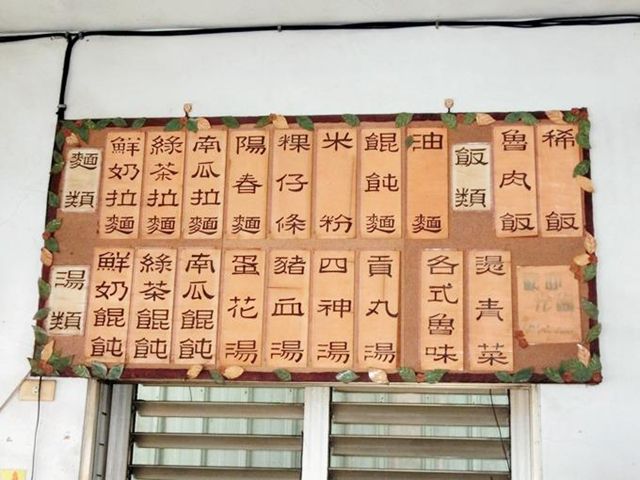 麵類
鮮奶拉麵
綠茶拉麵
南瓜拉麵
陽春麵
粿仔條
米粉
餛飩麵
油麵
飯類
魯肉飯
稀飯
湯類
鮮奶餛飩
綠茶餛飩
南瓜餛飩
蛋花湯
豬血湯
四神湯
貢丸湯
各式魯味
燙青菜